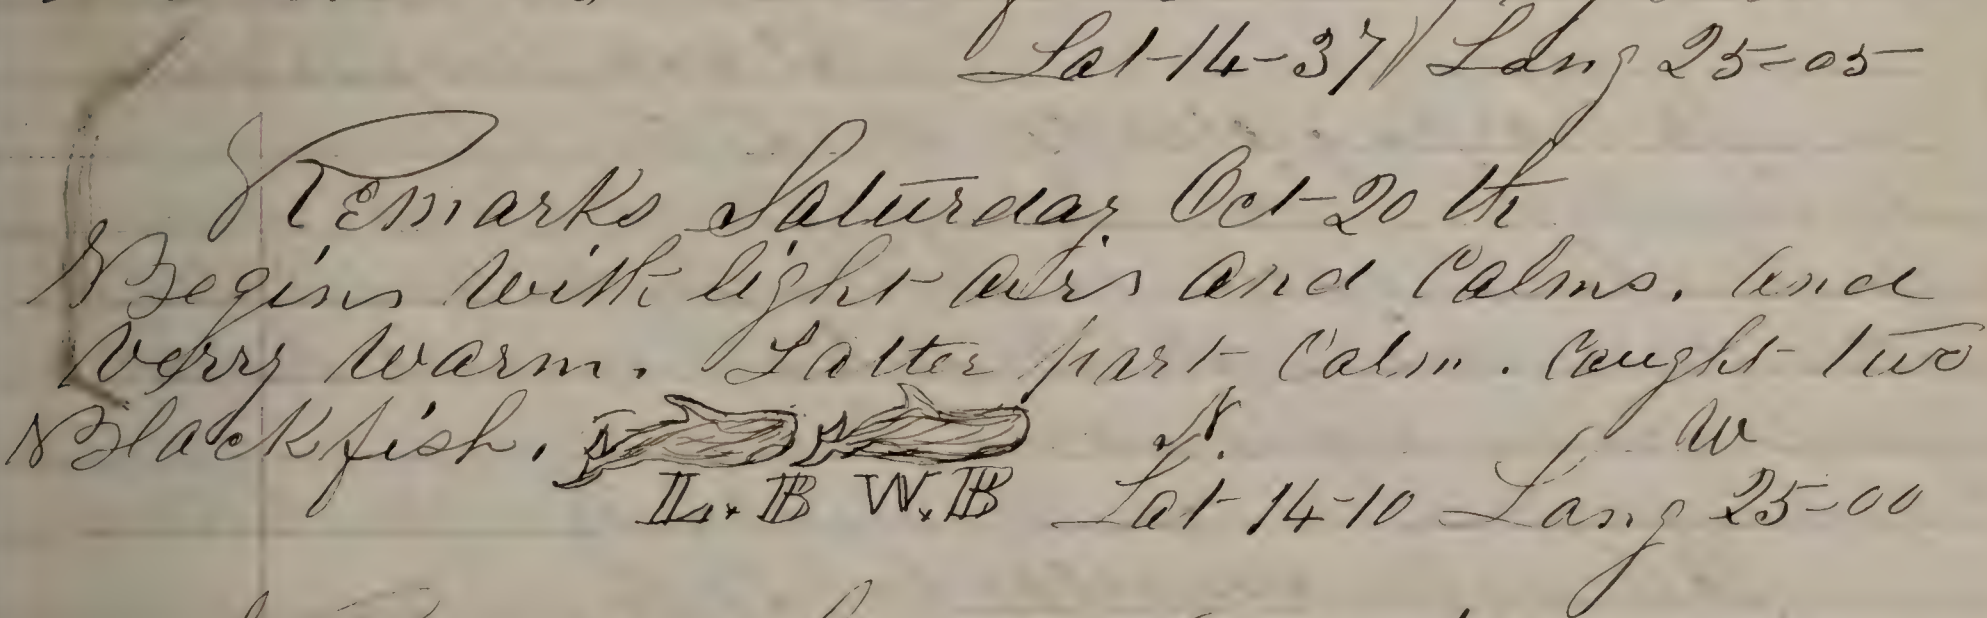 Lat-14-37 Long 25-05
Remarks Saturday Oct-20th
Begins with light airs and Calms. and
verry warm. Latter part Calm. Caught two
Blackfish. N. W
L.B W.B Lat-14-10 Long 25-00